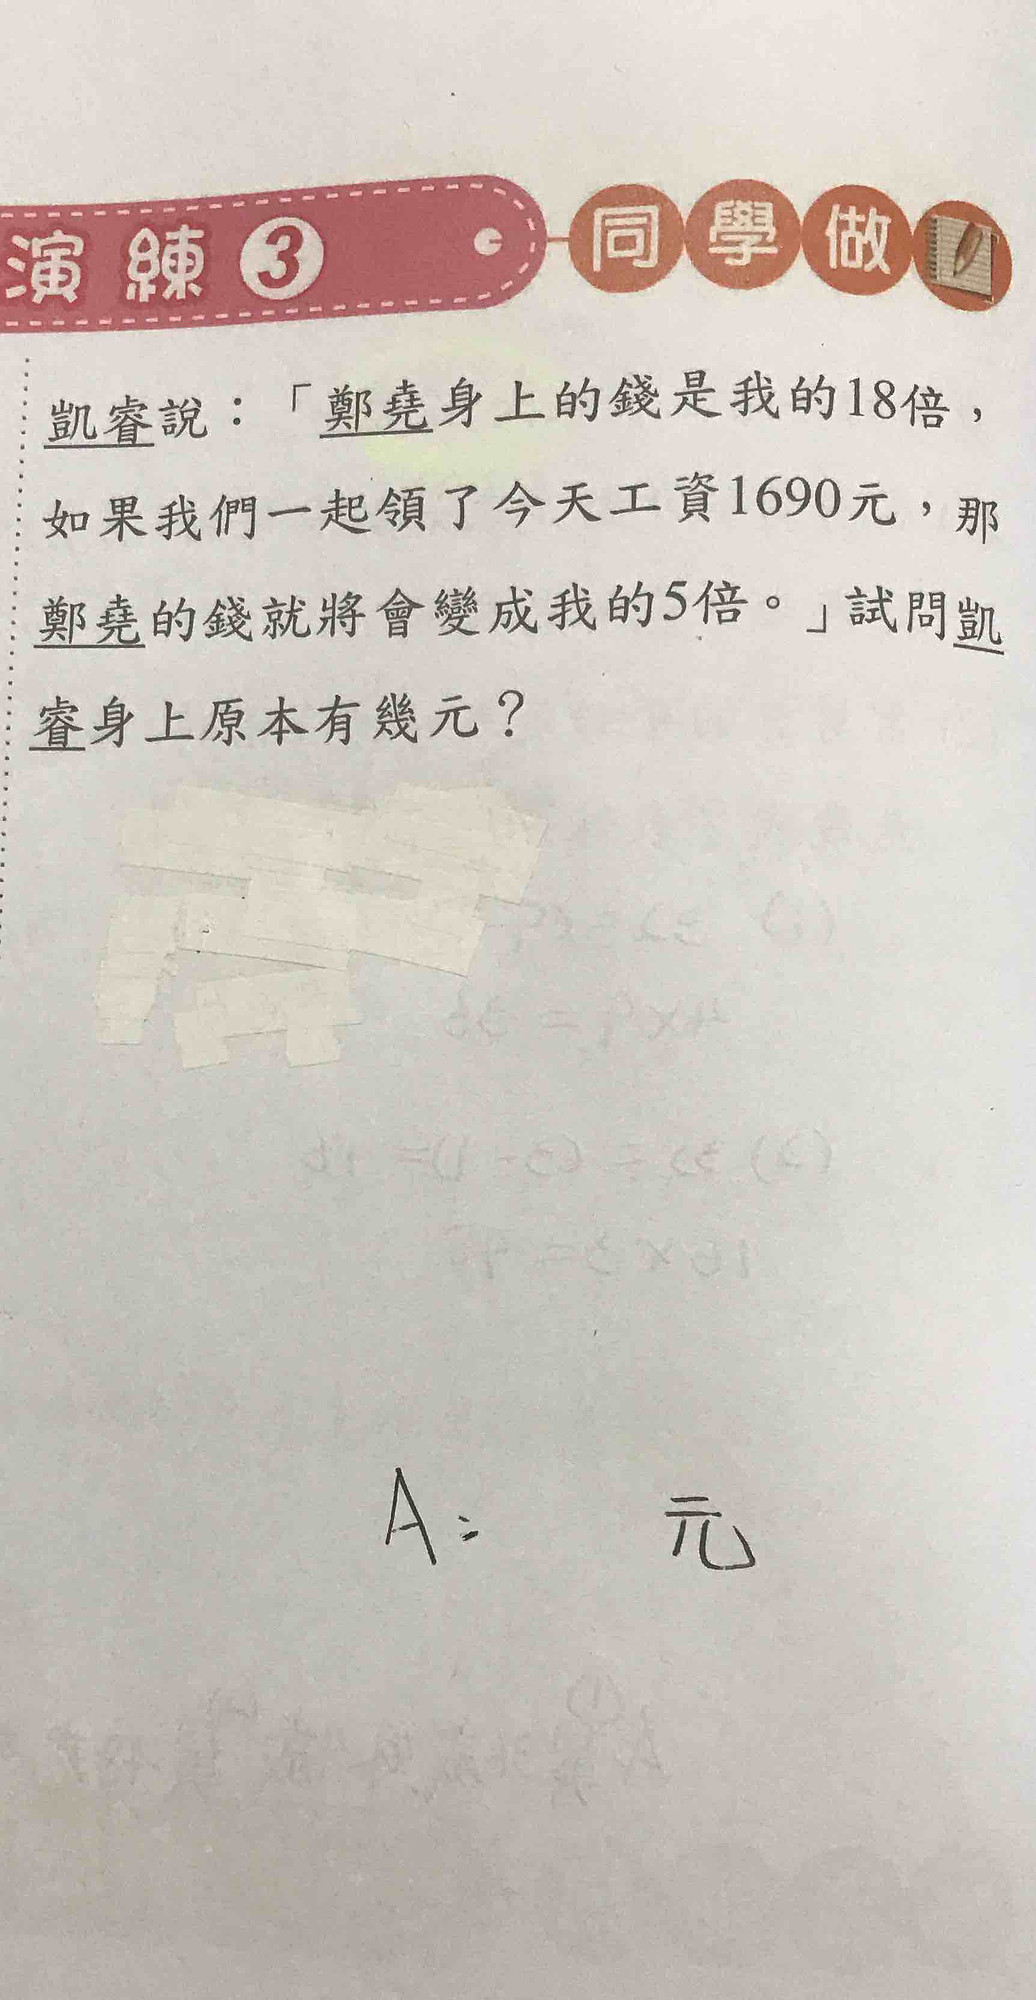 演練3 同學做
凱睿說：「鄭堯身上的錢是我的18倍，
如果我們一起領了今天工資1690元，那
鄭堯的錢就將會變成我的5倍。」試問凱
睿身上原本有幾元？
A: 元